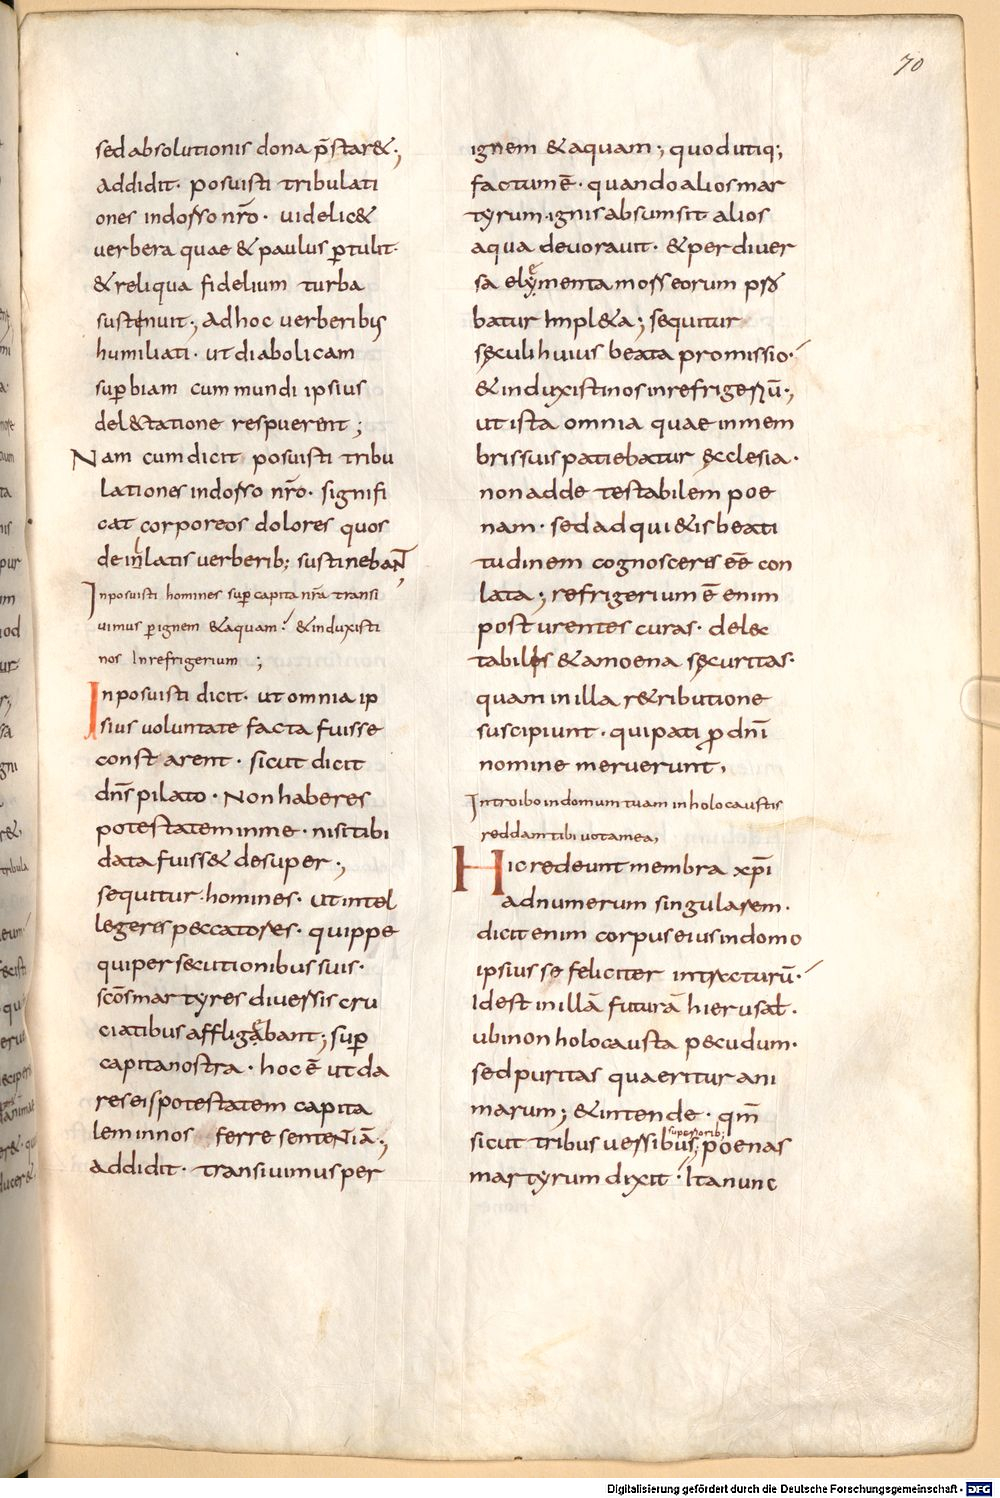 70
sed absolutionis dona p̄star&;,
addidit· posuisti tribulati
ones indosso nr̄o· uidelic&
verbera quae & paulus ꝑtulit·
& reliqua fidelium turba
sustinuit; Adhoc verberibus
humiliati· ut diabolicam
suꝑbiam cum mundi ipsius
del&tatione respuerent;
Nam cum dicit posuisti tribu
lationes indosso nr̄o· signifi
cat corporeos dolores quos
de inlatis uerberib; sustinebant,
Inposuisti homines suꝑ capita nr̄a transi
uimus ꝑ ignem & aquam· & induxisti
nos In refrigerium ;
Inposuisti dicit· ut omnia ip
sius uoluntate facta fuisse
constarent· sicut dicit
dn̄s pilato· Non haberes
potestatem in me· nisi tibi
data fuiss& desuper·,
sequitur· homines· ut intel
legeres peccatores· quippe
qui persecutionibus suis·
sc̄os martyres diversis cru
ciatibus affligebant; suꝑ
capita nostra· hoc ē ut da
res eis potestatem capita
lem in nos ferre sententiā·,
addidit· transivimus per
ignem & aquam; quod utiq;
factum ē· quando alios mar
tyrum· ignis absumsit alios
aqua devoravit· & per diver
sa elęmenta mors eorum
batur Impl&a; sequitur
sęculi huius beata promissio·
& induxisti nos in refrigeriū·,
ut ista omnia quae in mem
bris suis patiebatur ęcclesia·
non adde testabilem poe
nam· sed ad qui&is beati
tudinem cognosceres eē con
lata; refrigerium ē enim
post urentes curas· delec
tabilis & amoena sęcuritas·
quam in illa r&ributione
suscipiunt· qui pati ꝓ dnī
nomine meruerunt,
Introibo in domum tuam in holocaustis
reddam tibi vota mea,
Hic redeunt membra xp̄i
ad numerum singularem·
dicit enim corpus eius in domo
ipsius se feliciter intrecturū·
Id est in illā futurā hierusal̄·
ubi non holocausta pecudum·
sed puritas quaeritur ani
marum; & intende· qm̄
superiorib;
sicut tribus versibus; poenas
martyrum dixit· Ita nunc
Digitalisierung gefördert durch die Deutsche Forschungsgemeinschaft · DFG